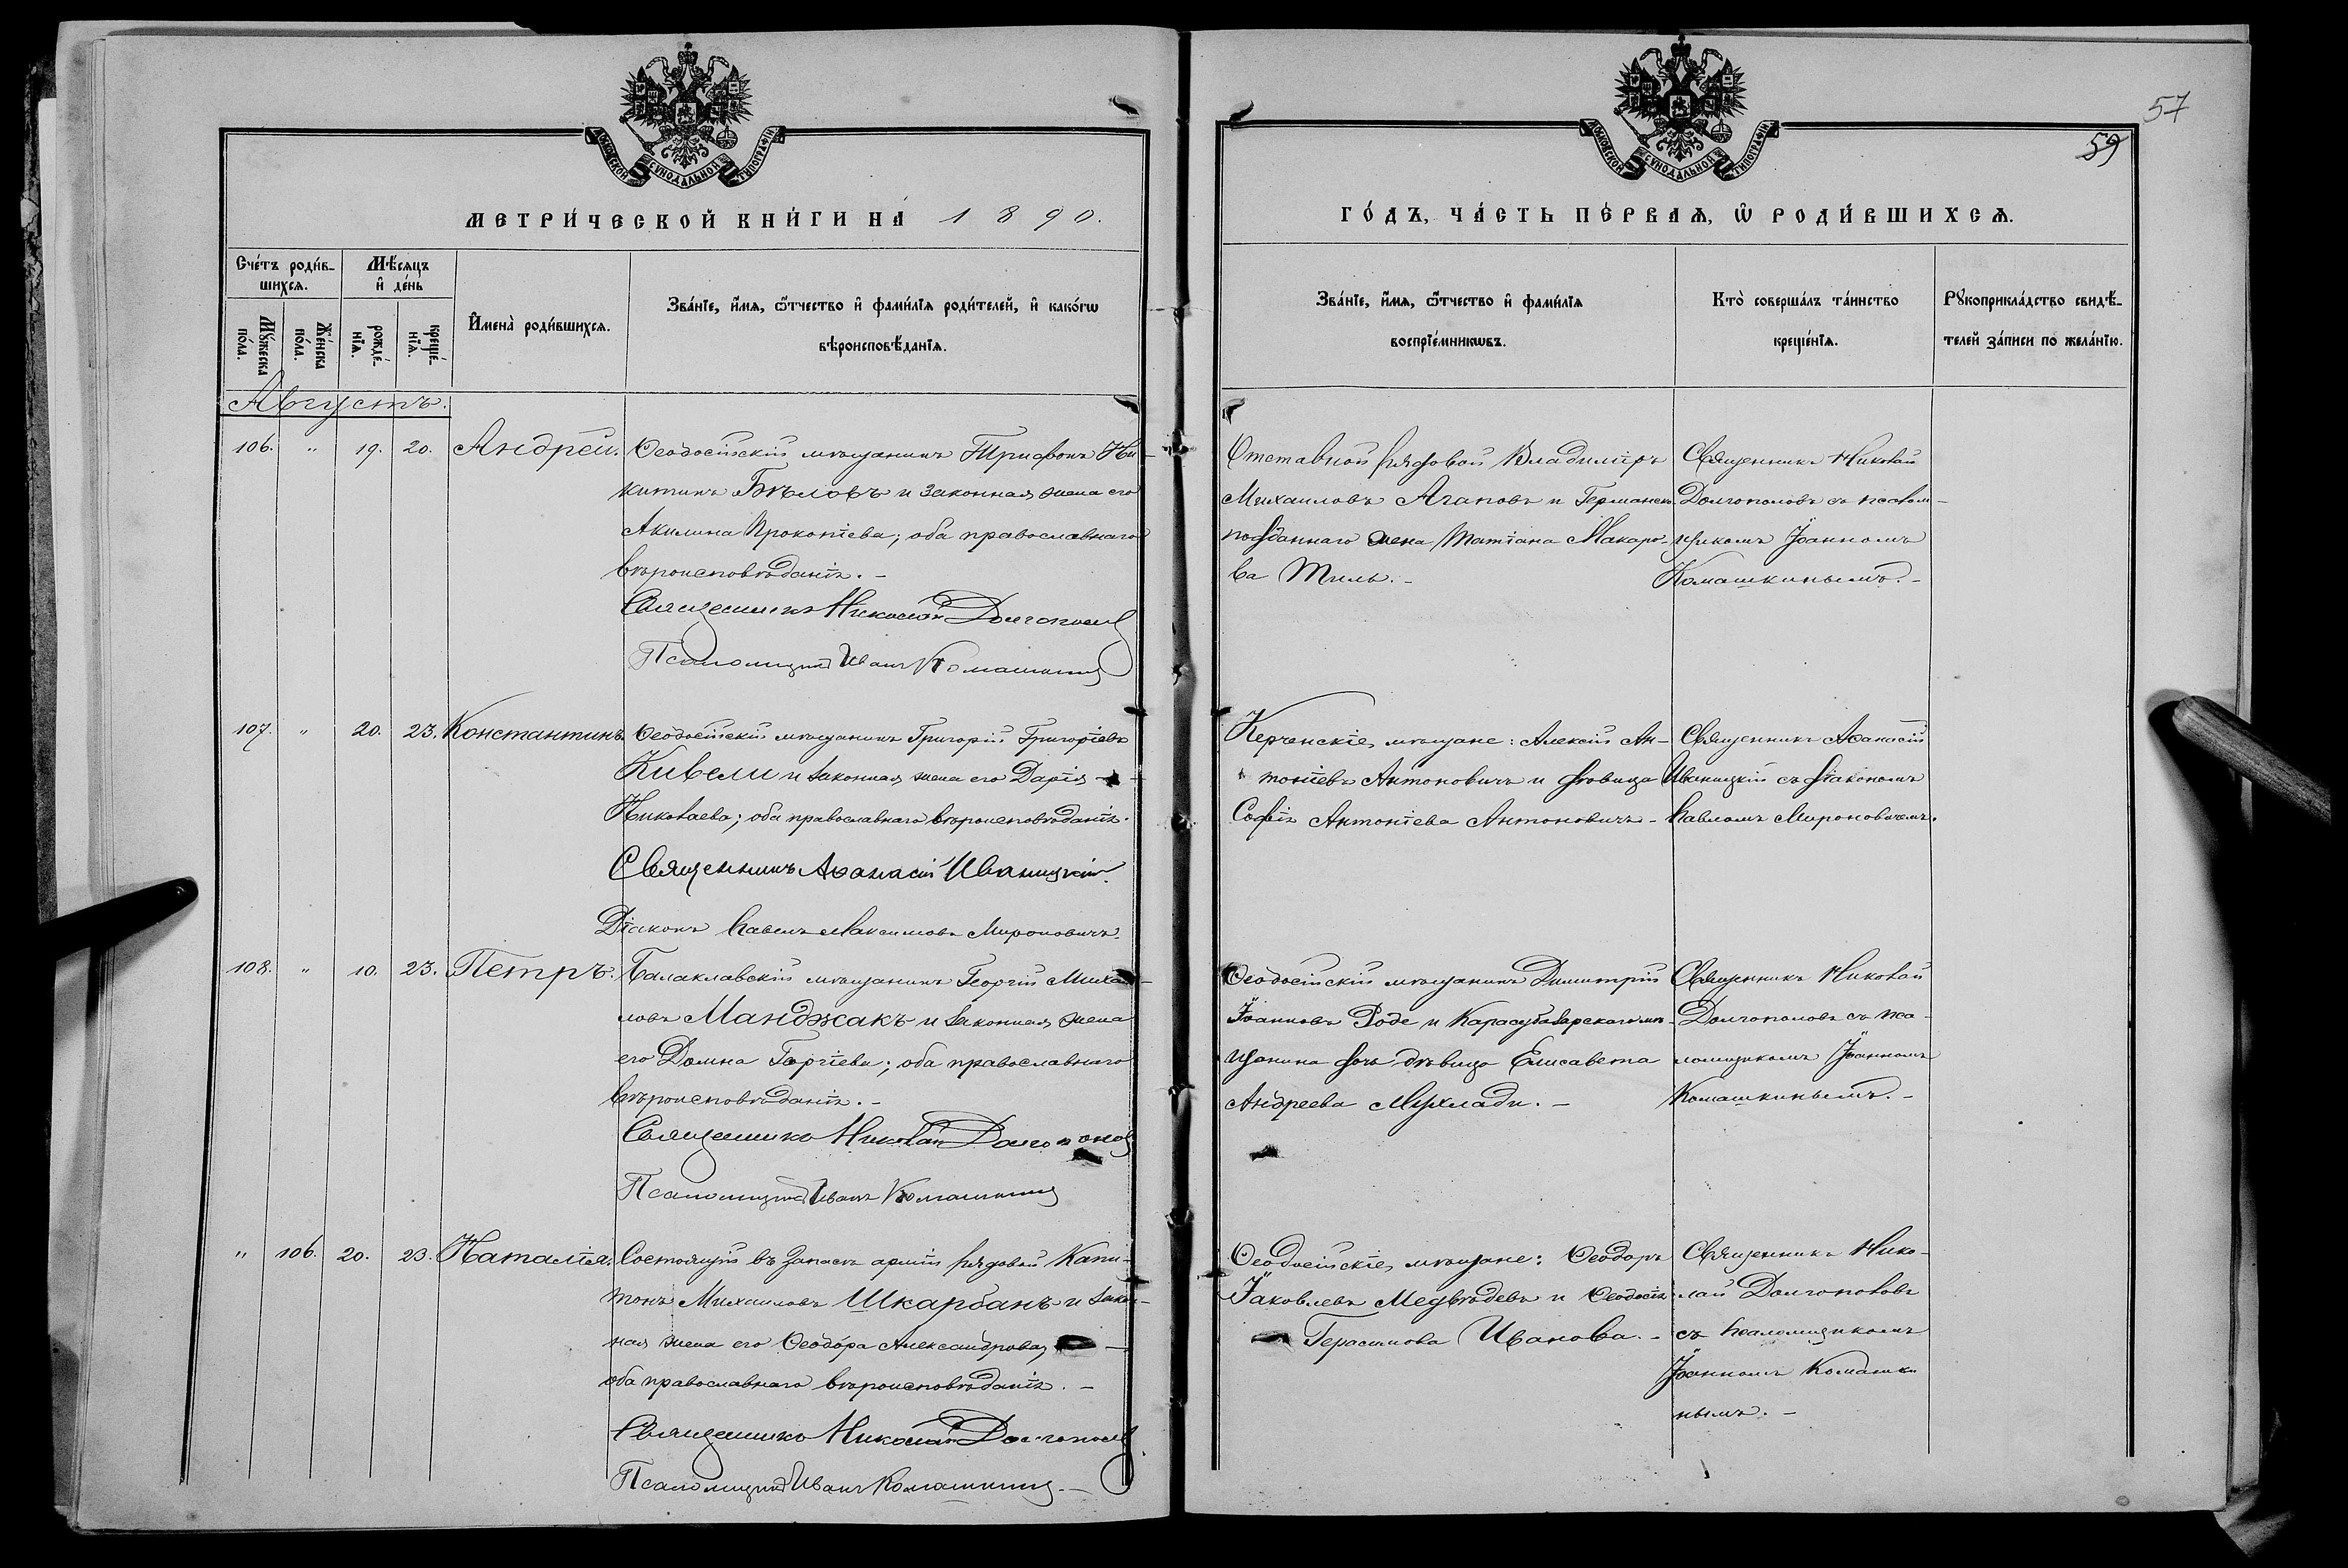 МОСКОВСКОЙ СѴНОДАЛЬНОЙ ТИПОГРАФІИ
МЕТРИ́ЧЕСКОЙ КНИ́ГИ НА̀ 1890.
Сче́тъ роди́в-
шихсѧ.
Мѣ́сѧцъ
и҆ де́нь
Мꙋ́жеска
по́ла.
Же́нска
по́ла.
рожде́-
нїѧ.
креще́-
нїѧ.
И҆мена̀ роди́вшихсѧ.
Зва́нїе, и҆́мѧ, ѻ҆́тчество и҆ фами́лїѧ роди́телей, и҆ како́гѡ
вѣроисповѣ́данїѧ.
Августъ.
106. " 19. 20. Андрей. Ѳеодосійскій мѣщанинъ Трифонъ Ни-
китинъ Бѣловъ и законная жена его
Акилина Прокопіева; оба православнаго
вѣроисповѣданія. -
Священникъ Николай Долгополов
Псаломщикъ Иванъ Комашкинъ
107. " 20. 23. Константинъ. Ѳеодосійскій мѣщанинъ Григорій Григоріевъ
Кивели и законная жена его Дарія -
Николаева; оба православнаго вѣроисповѣданія.
Священникъ Аѳанасій Иваницкій.
Діаконъ Павелъ Максимовъ Мироновичъ.
108. " 10. 23. Петръ. Балаклавскій мѣщанинъ Георгій Михаи-
ловъ Манджакъ и законная жена
его Домна Георгіева; оба православнаго
вѣроисповѣданія. -
Священникъ Николай Долгополов
Псаломщикъ Иванъ Комашкинъ
" 106. 20. 23. Наталія. Состоящій въ запасѣ арміи рядовой Капи-
тонъ Михаиловъ Шкарбанъ и закон-
ная жена его Ѳеодора Александрова, -
оба православнаго вѣроисповѣданія. -
Священникъ Николай Долгополов
Псаломщикъ Иванъ Комашкинъ. -
57
59
МОСКОВСКОЙ СѴНОДАЛЬНОЙ ТИПОГРАФІИ
ГО́ДЪ, ЧА́СТЬ ПЕ́РВАѦ, Ѡ҆ РОДИ́ВШИХСѦ.
Зва́нїе, и҆́мѧ, ѻ҆́тчество и҆ фами́лїѧ
воспрїе́мникѡвъ.
Кто̀ соверша́лъ та́инство
креще́нїѧ.
Рꙋкоприкла́дство свидѣ́-
телей за́писи по жела́нїю.
Отставной рядовой Владиміръ
Михаиловъ Агаповъ и Германск.
подданнаго жена Татіана Макаро-
ва Тиль. -
Священникъ Николай
Долгополовъ съ псалом-
щикомъ Іоанномъ
Комашкинымъ. -
Керченскіе мѣщане: Алексій Ан-
тоніевъ Антоновичъ и дѣвица
Софія Антоніева Антоновичъ. -
Священникъ Аѳанасій
Иваницкій съ діакономъ
Павломъ Мироновичемъ.
Ѳеодосійскій мѣщанинъ Димитрій
Іоанновъ Роде и Карасубазарскаго мѣ-
щанина дочь дѣвица Елисавета
Андреева Мурлади. -
Священникъ Николай
Долгополовъ съ пса-
ломщикомъ Іоанномъ
Комашкинымъ. -
Ѳеодосійскіе мѣщане: Ѳеодоръ
Іаковлевъ Медвѣдевъ и Ѳеодосія
Герасимова Иванова. -
Священникъ Нико-
лай Долгополовъ
съ псаломщикомъ
Іоанномъ Комашки-
нымъ. -